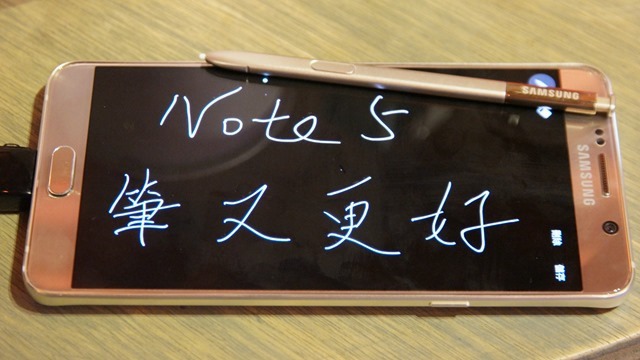 Note 5
筆又更好
SAMSUNG
SAMSUNG
刪除
儲存